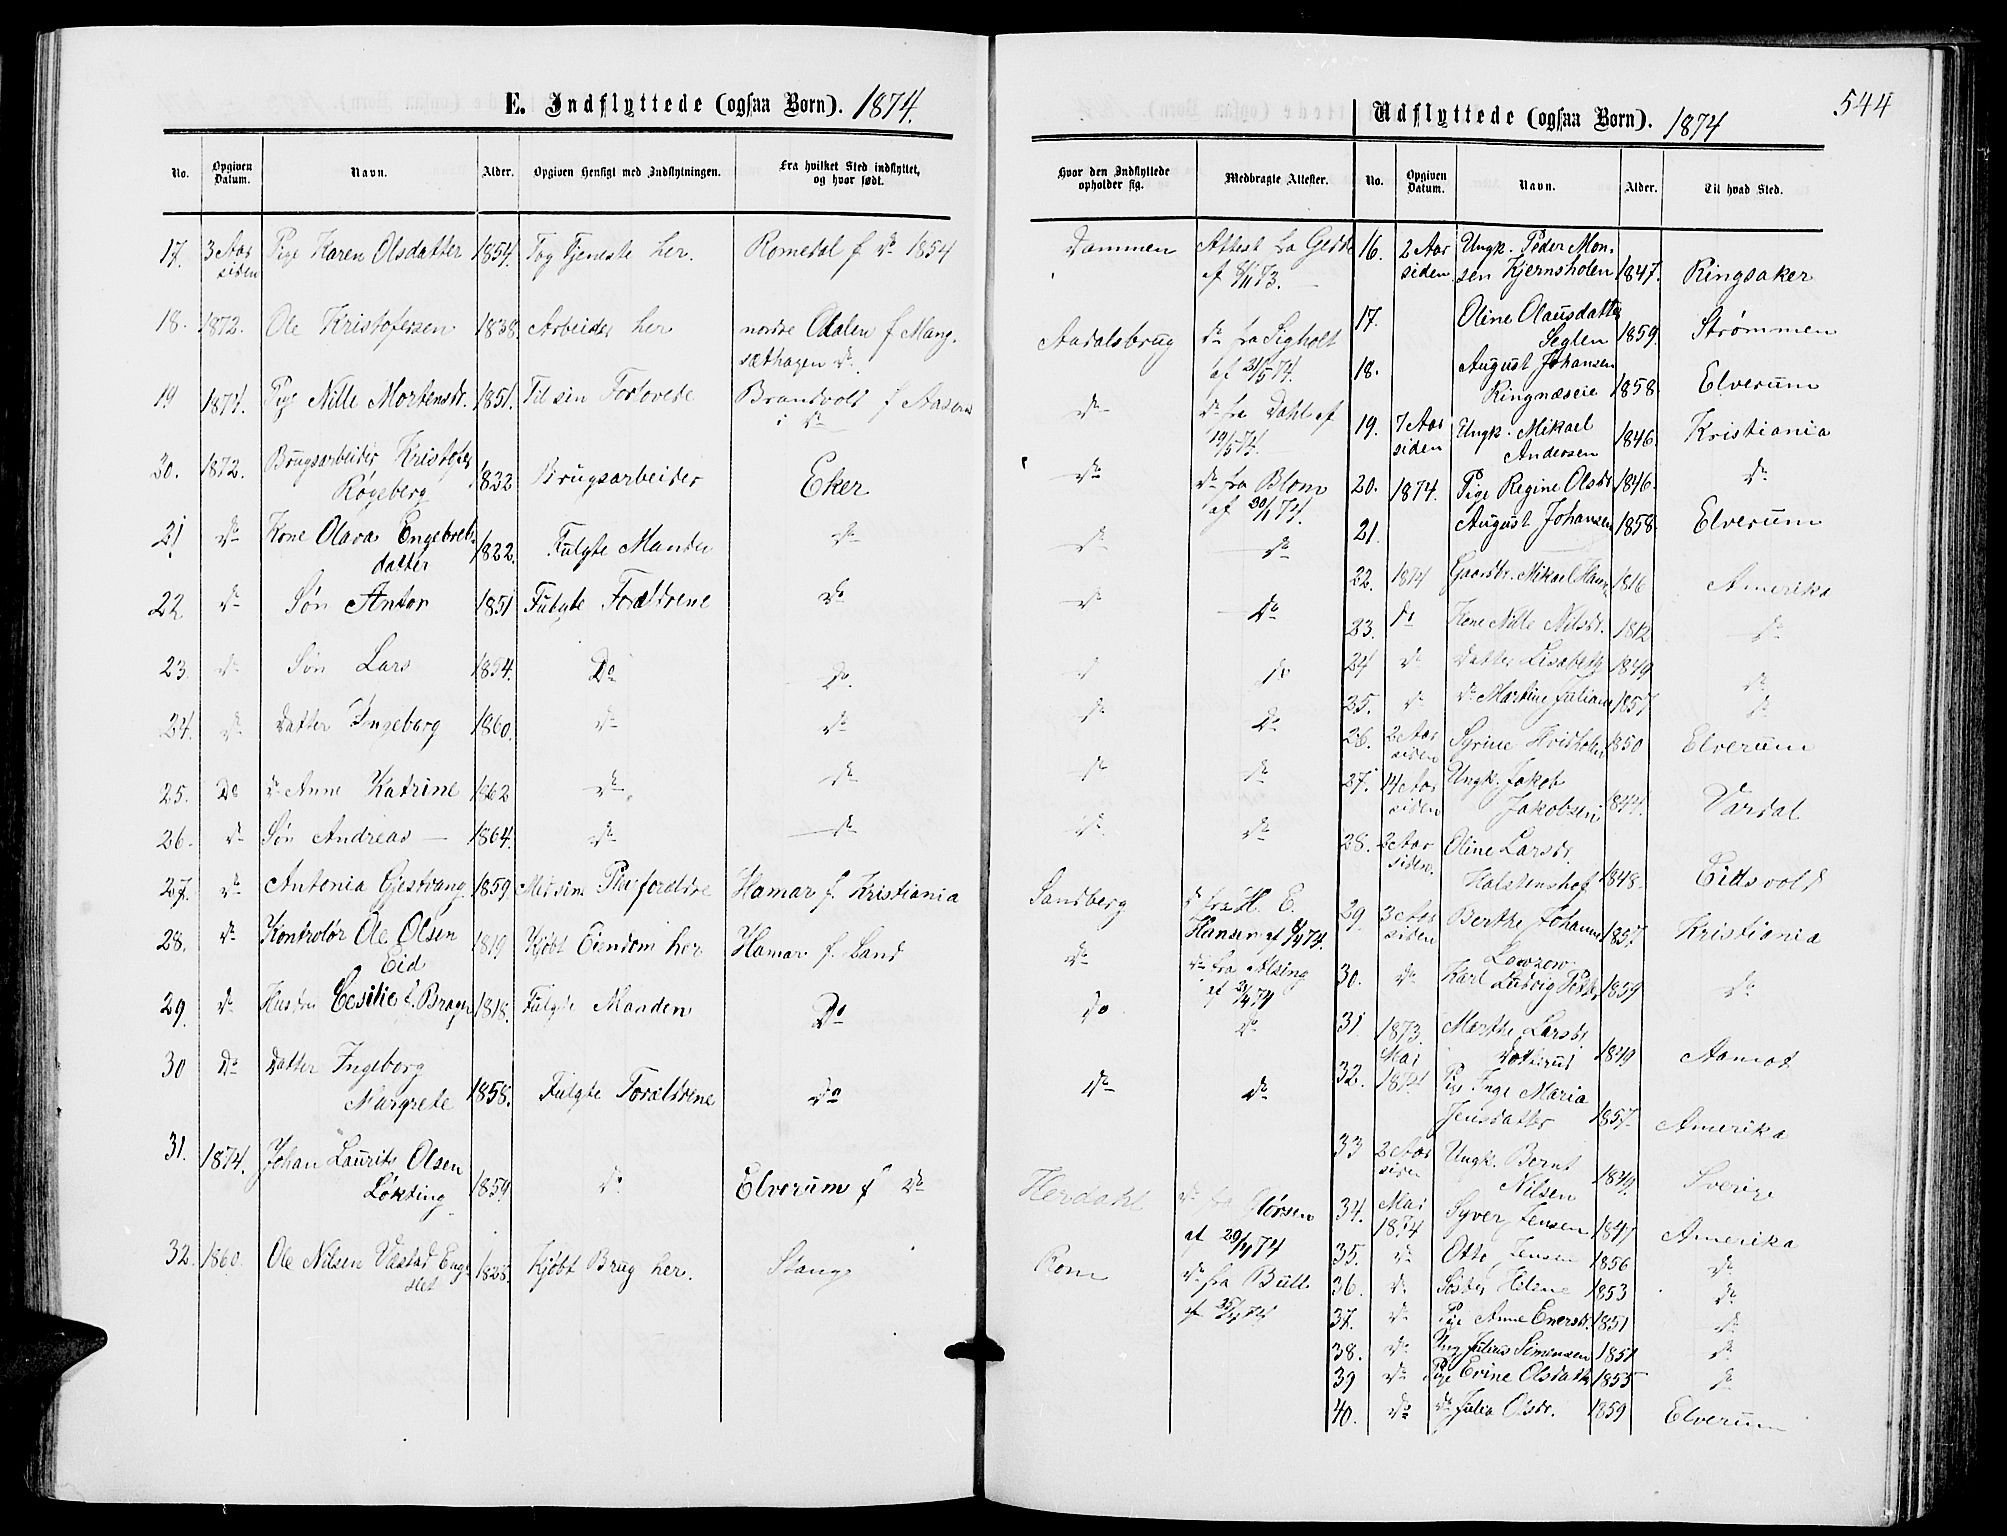 E. Indflyttede (ogsaa Børn). 1874.
No.
Opgiven Datum.
Navn.
Alder.
Opgiven Hensigt med Indflytningen.
Fra hvilket Sted indflyttet, og hvor født.
17. 3 Aar siden Pige Karen Olsdatter 1854. Tog Tjeneste her. Romedal f. do 1854
18. 1872. Ole Kristofersen 1838. Arbeider her nordre Odalen f Mang-
sæthagen do.
19 1874. Pige Nille Mortensdr. 1851. Til sin Forlovede Brandvold f Aasens
i do
30. 1872. Brugsarbeider Kristofer
Røgeberg 1832 Brugsarbeider Eker
21 do Kone Olava Engebrets-
datter 1822. Fulgte Manden do
22 do Søn Anton 1851 Fulgte Forældrene do
23 do Søn Lars 1854. Do Do.
24. do Datter Ingeborg 1860. do do
25. Do do Anne Katrine 1862 do do
26. do Søn Andreas 1864. do do
27. do Antonia Gjestvang 1859 Med sine Pleiforældre Hamar f. Kristiania
28. do Kontrolør Ole Olsen
Eid 1819 Kjøbt Eiendom her Hamar f. Land
29. do Hustru Cesilie f. Bragn 1818. Fulgte Manden Do
30 Do Datter Ingeborg
Margrete 1858. Fulgte Forældrene Do
31. 1874. Johan Laurits Olsen
Løkting 1859 do Elverum f do
32. 1860. Ole Nilsen Væstad Eng-
slet 1828. Kjøbt Brug her. Stange
544
Hvor den Indflyttede opholder sig.
Medbragte Attester.
Dammen Attest fra Gedde
af 8/11 73.
Aadalsbrug do fra Sigholt
af 21/5 74.
do do fra Dahl af
19/5 74.
do do fra Blom
af 30/1 74.
do do
do Do
do do
do Do
do do
do do
Sandberg do fra H. E.
Hansen af 9/4 74.
do do fra Alsing
af 21/4 74
Do do
do do
Herdahl do fra Hørsen
af 29/4 74
Rom do fra Bull
af 25/4 74
Udflyttede (ogsaa Børn). 1874
No.
Opgiven Datum.
Navn.
Alder.
Til hvad Sted.
16. 2 Aar siden Ungk. Peder Mon-
sen Kjernsholen 1847. Ringsaker
17. Oline Olausdatter
Seglen 1859. Strømmen
18. August Johansen
Ringnæseie 1858. Elverum
19. 7 Aar siden Ungk. Mikael
Andersen 1846. Kristiania
20. 1874. Pige Regine Olsdr. 1846. do
21. August Johansen 1858. Elverum
22. 1874 Gaardbr. Mikael Hans. 1816 Amerika
23. do Kone Nille Nilsdr. 1812 do
24 do Datter Lisabeth 1849 do
25. do do Martine Juliane 1857 do
26. 2 Aar siden Syrine Hvidholen 1850 Elverum
27. 14 Aar siden Ungk. Jakob
Jakobsen 1844. Vardal
28. 2 Aar siden Oline Larsdr.
Holstenshof 1848. Eidsvold
29. 3 Aar siden Berthe Johanne
Lowzow 1857. Kristiania
30. do Karl Ludvig Petter 1859 do
31 1873. Marthe Larsdr.
1849 Aamot
32. Mai 1874 Pige Inge Maria
Jensdatter 1857. Amerika
33 2 Aar siden Ungk. Bernt
Nilsen 1849. Sverige
34. Mai 1874 Syver Jensen 1847 Amerika
35. do Otto Jensen 1856 do
36. do Søster Helene 1853 do
37. do Pige Anne Enersdr. 1851 do
38. do Ung. Julius Simensen 1851 do
39 do Pige Erine Olsdatter 1855 do
40. do do Julia Olsdr. 1859 Elverum